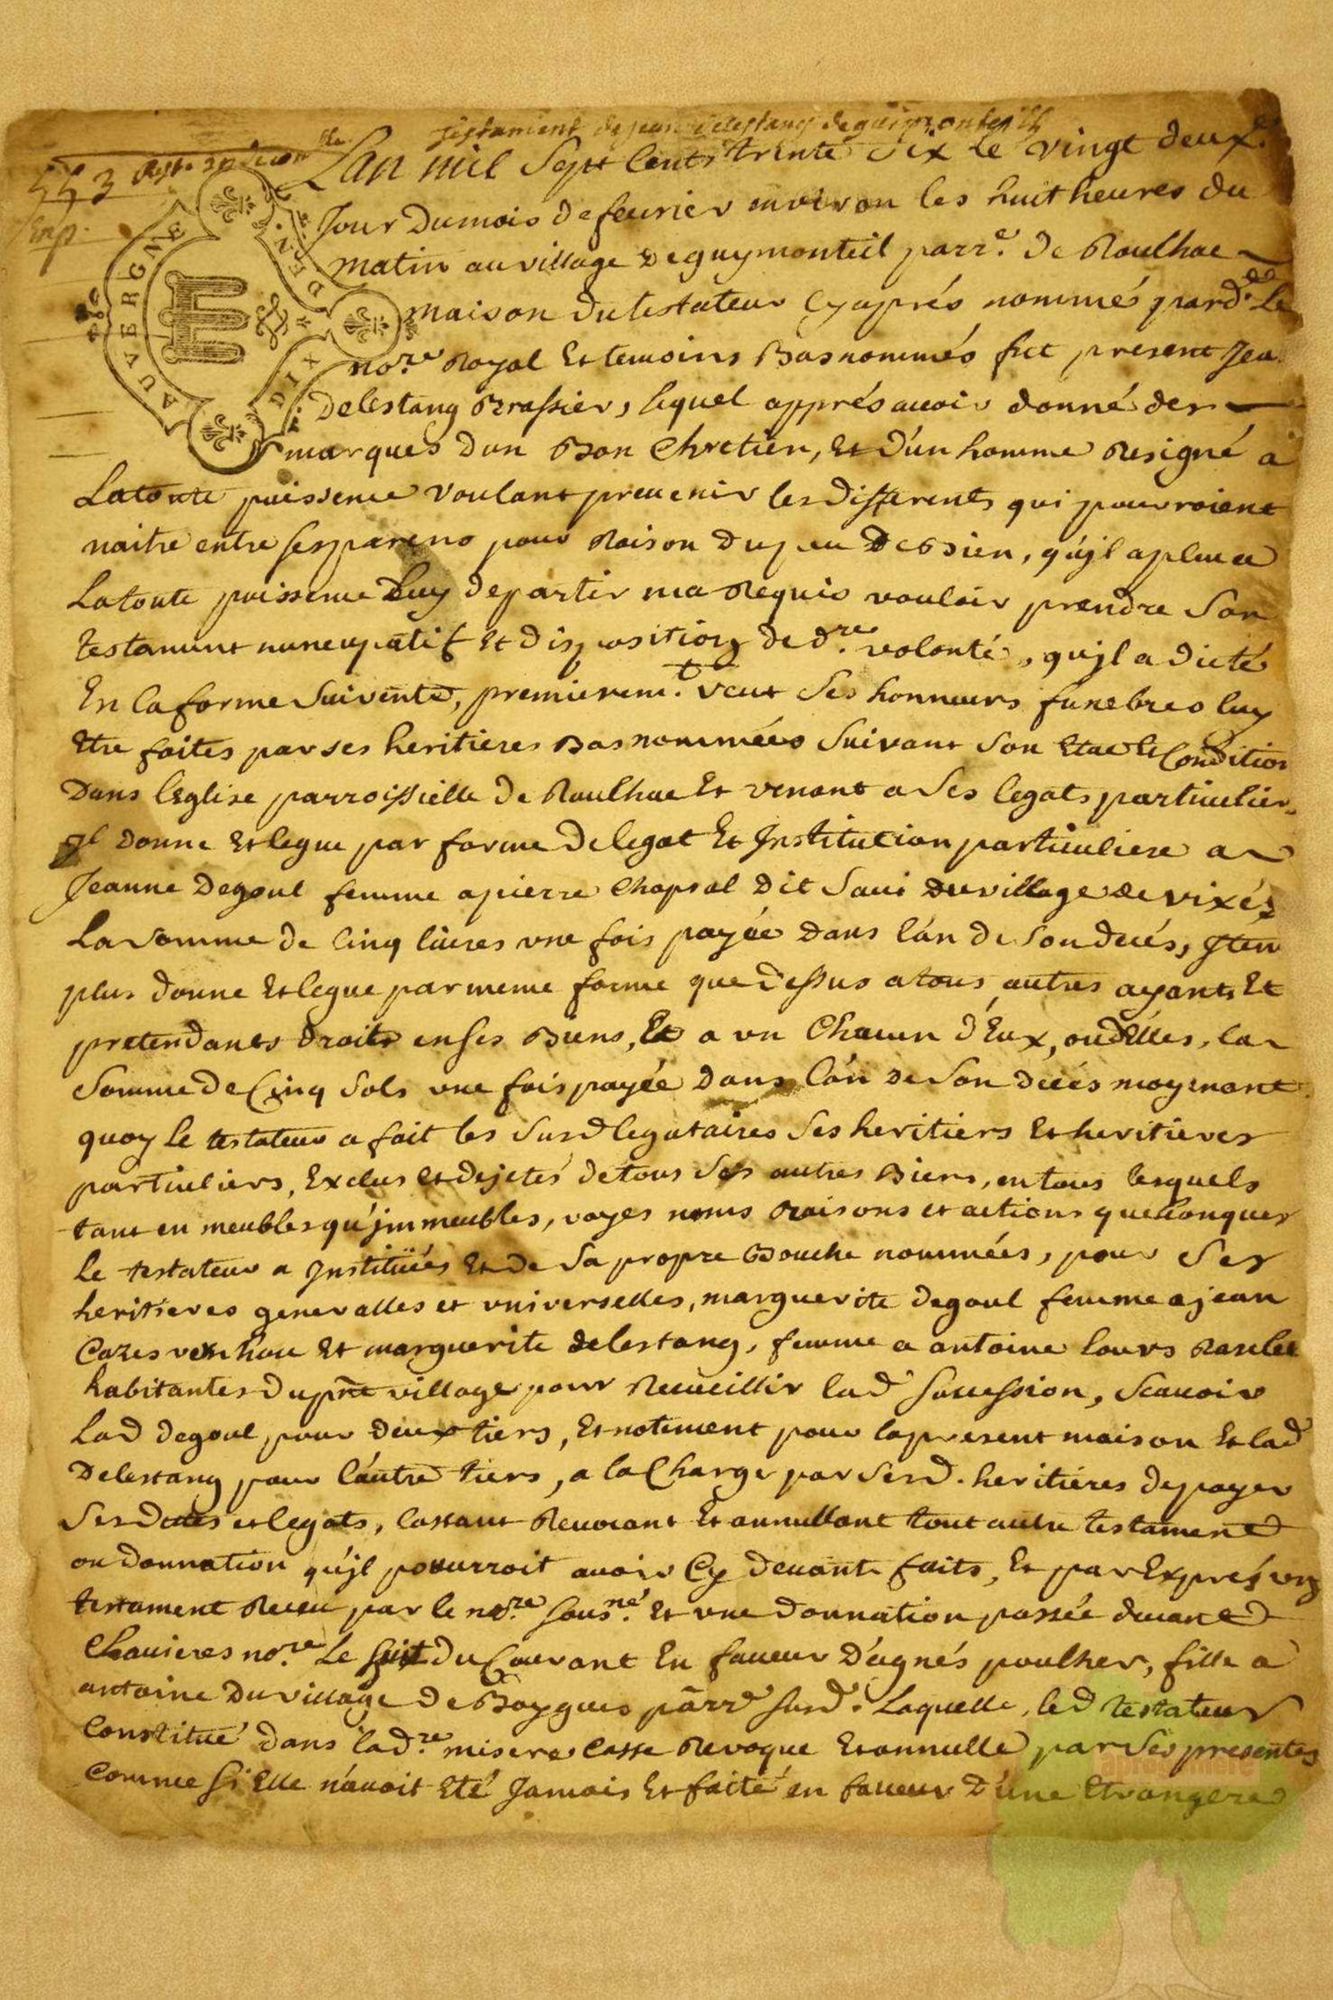 testament de jean delestang de guimonteilh
553
L'an mil Sept Cents trente Six Le vingt deuxe
Jour Du mois de feurier environ les huit heures du
AUVERGNE DIX DEN.
matin au village De guymonteil parr.e De Roulhac
maison Du testateur Cy aprés nommé pard. Le
no.re Royal Et temoins Bas nommés fut present Jea
Delestang Brassier, lequel apprés auoir donné des
marques d'un Bon Chretien, Et D'un homme Resigné a
La toute puissence Voulant preuenir les Differents qui pourroient
naitre entre ses parens pour Raison Du peu De Bien, qu'jl a pleu a
La toute puissence Luy departir ma Requis vouloir prendre Son
testament nuncupatif Et disposition de d.re volonté, qu'jl a dicté
En la forme Suivente, premierem.t veut Ses honneurs funebres luy
Etre faites par ses heritieres Bas nommées Suivant Son Etat Et Condition
Dans l'Eglise parroissielle de Roulhac Et venant a Ses legats particulier
Jl Donne Et legue par forme De legat Et Institution particuliere a
Jeanne Degoul femme a pierre Chapsal Dit Saui du village de vixés
La Somme de Cinq liures vne fois payée Dans l'án de Son decés, Jten
plus donne Et legue par meme forme que Dessus a tous autres ayants Et
pretendants droits en ses Biens, Et a vn Chacun d'Eux, ou d'Elles, la
Somme de Cinq Sols vne fois payée Dans l'án de Son decés moyenant
quoy Le testateur a fait les Susd legataires Ses heritiers Et heritieres
particuliers, Exclus et dejetés de tous Ses autres Biens, en tous lesquels
tant en meubles qu'jmmeubles, voyes noms Raisons et actions quelconques
Le testateur a Instituées Et de Sa propre Bouche nommées, pour Ses
heritieres generalles et vniverselles, marguerite degoul femme a jean
Cazes Et marguerite delestang, femme a antoine Lours
habitantes Du pñt village pour Recueillir lad Succession, Scauoir
Lad degoul pour deux tiers, Et notement pour la present maison Et lad
Delestang pour l'áutre tiers, a la Charge par Sesd. heritiéres de payer
Ses Dettes et legats, Cassant Reuocant Et annullant tout autre testament
ou donnation qu'jl pouurroit auoir Cy deuant faits, Et par Exprés vn
testament Receu par le no.re Sous.né Et vne donnation passée deuant
Chauieres no.re Le huit du Courant En faueur D'ágnés poulher, fille a
antoine Du village de Boygues pãrr.e Susd. Laquelle, led testateur
Constitué dans lad.re misere Casse Revoque Et annulle par Ses presentes
Comme Si Elle n'áuoit Eté Jamais Et faite en faueur D'úne Etrangere